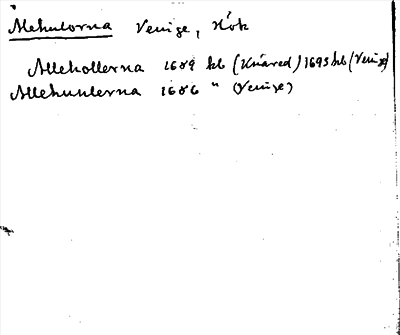 Alehulorna Veinge, Hök
Allehollerna 1689 kb (Knäred) 1693 kb (Veinge)
Allehunlerna 1686 " (Veinge)